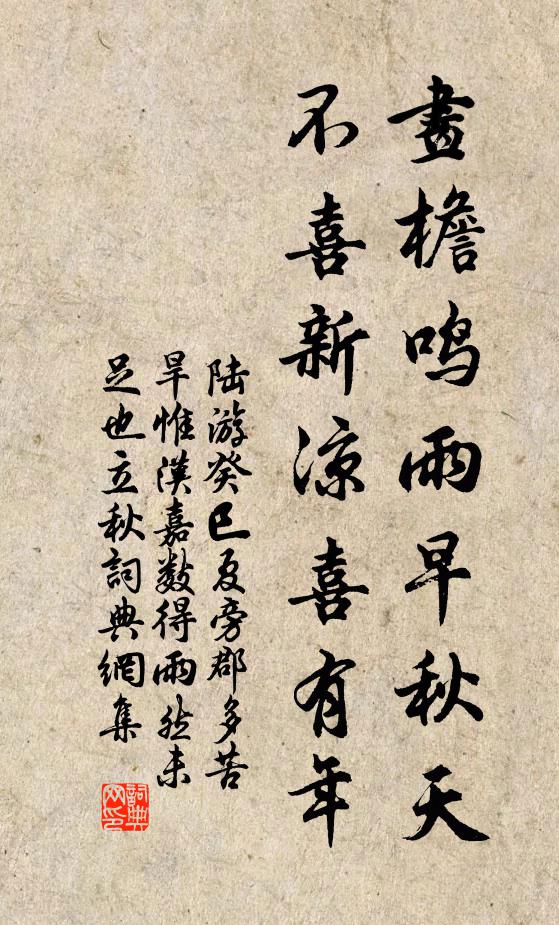 畫檐鳴雨早秋天
不喜新涼喜有年
陆游癸巳夏旁郡多苦
旱惟漢嘉數得雨然未
足也立秋詞典網集
詞典
网印